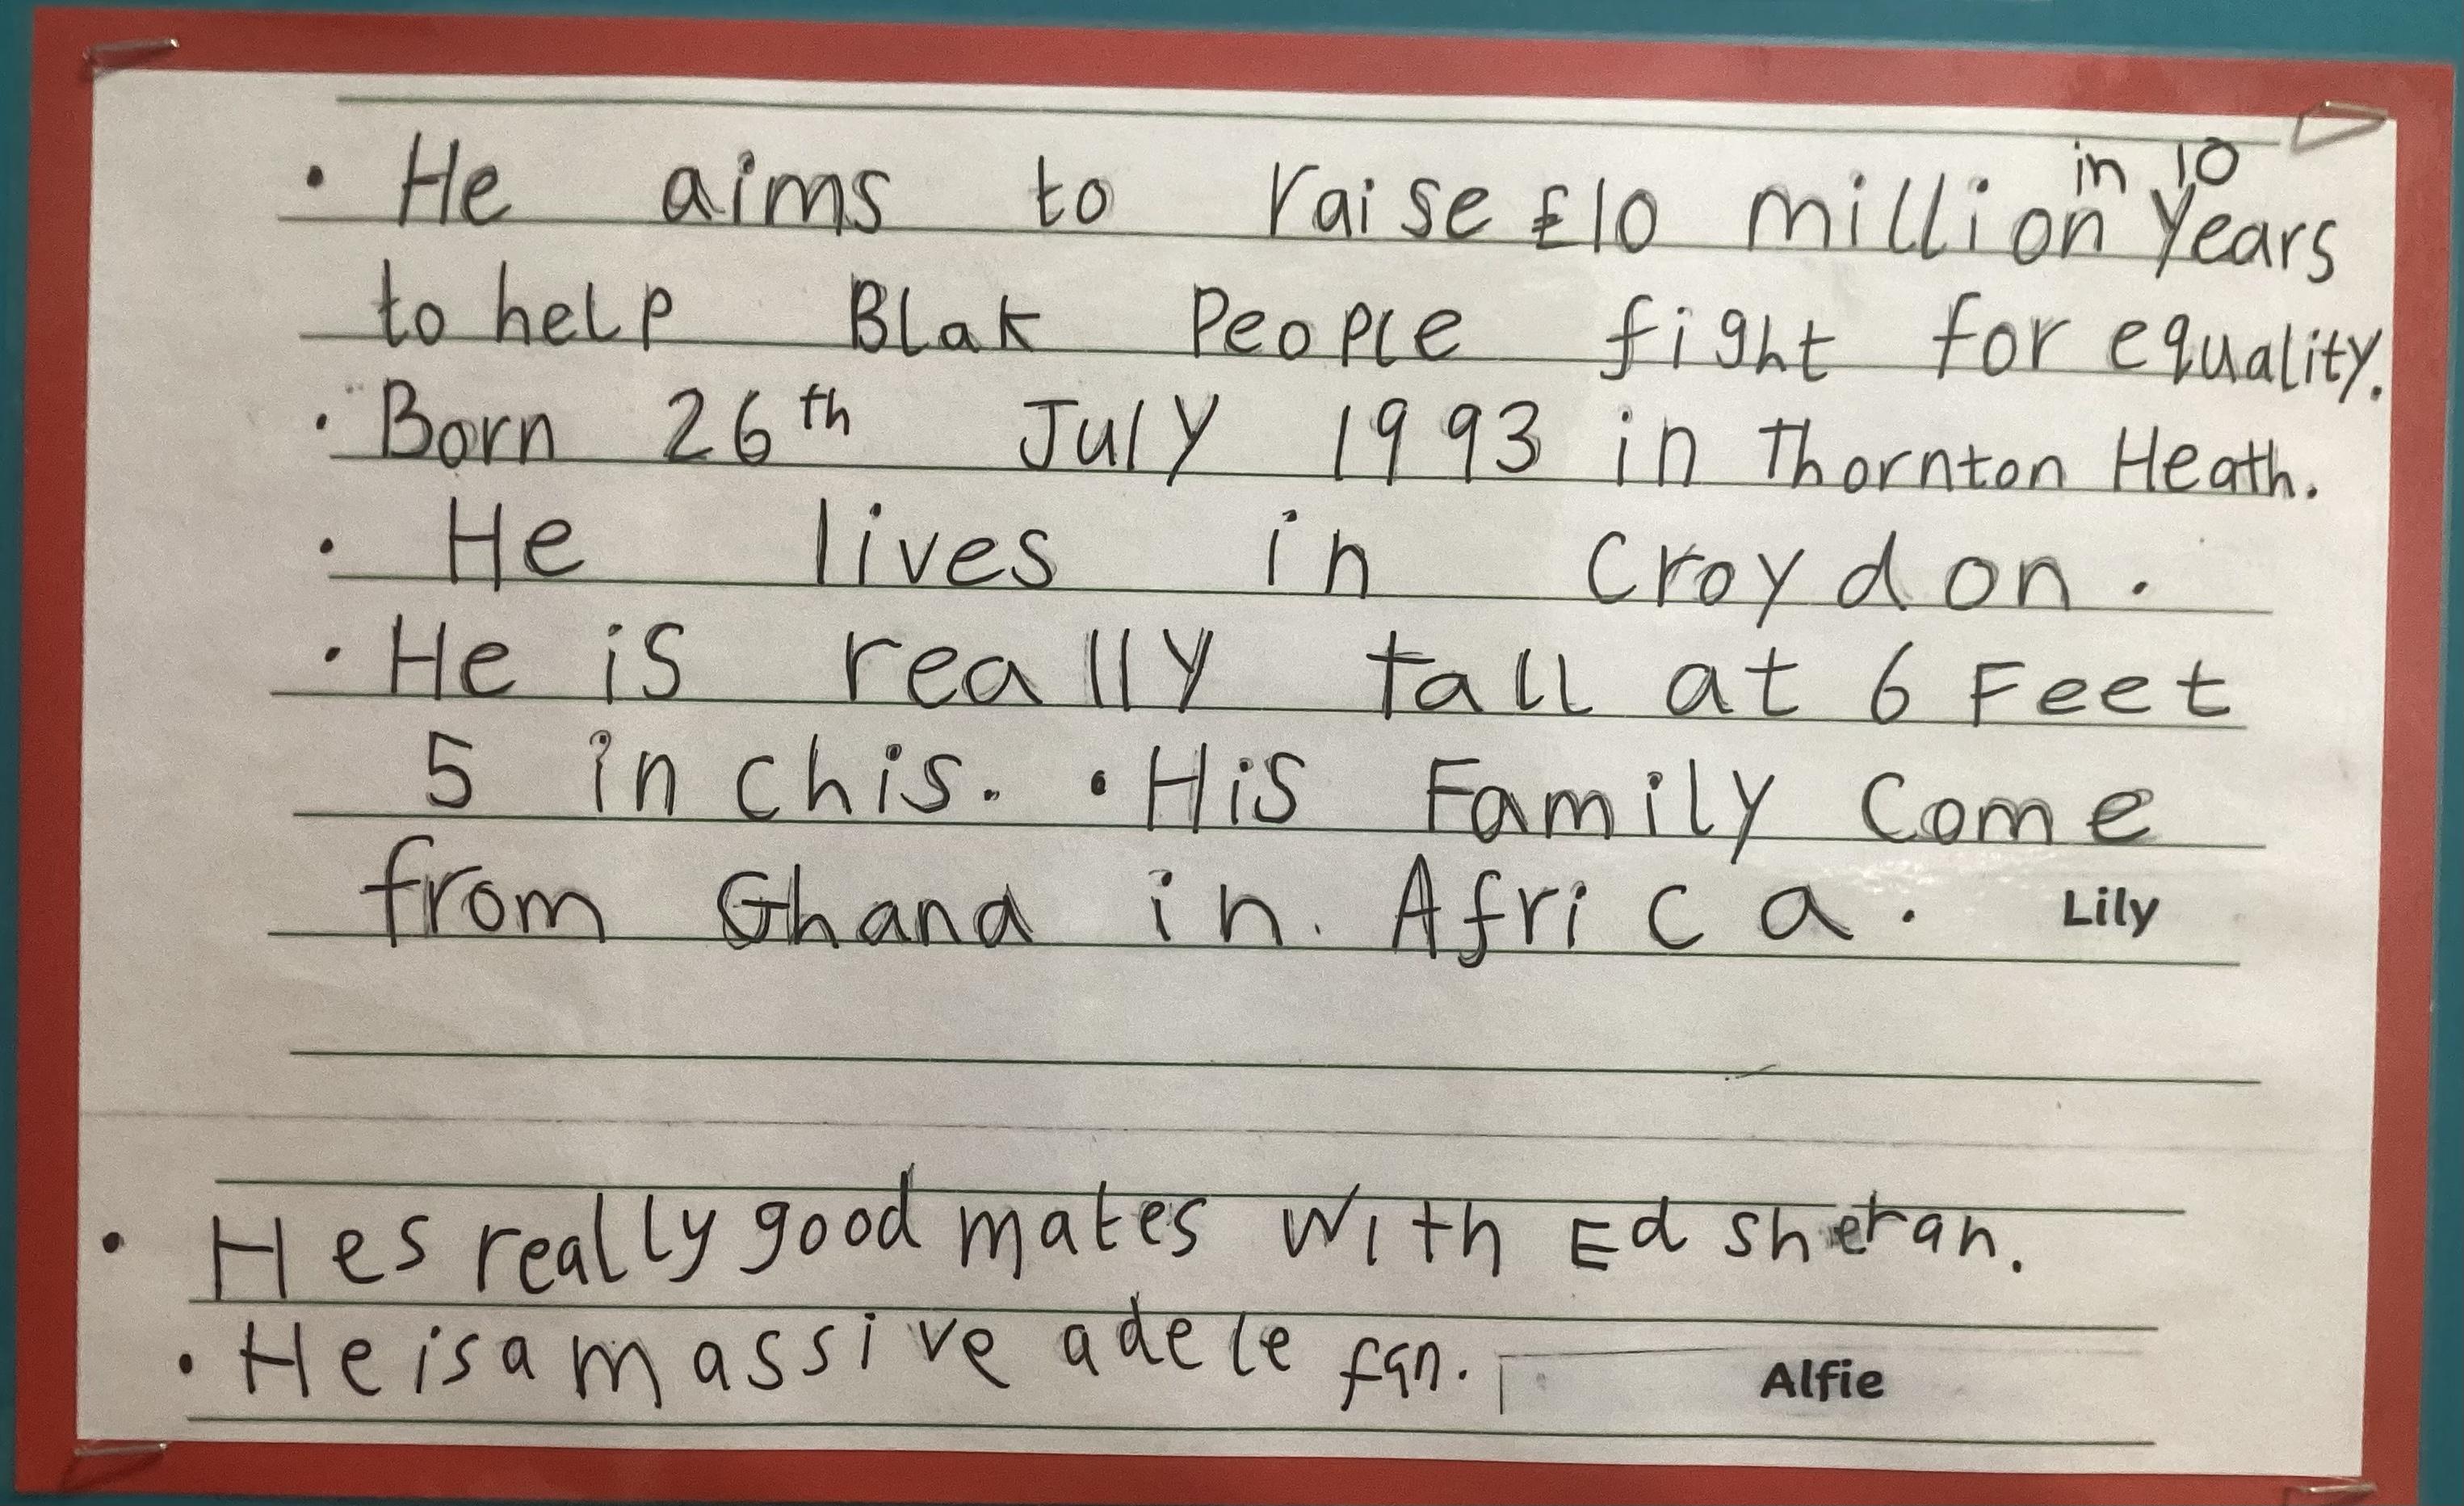 • He aims to raise £10 million in 10 years
to help Blak People fight for equality.
• Born 26th July 1993 in Thornton Heath.
• He lives in Croydon.
• He is really tall at 6 Feet
5 inchis. • His Family Come
from Ghana in. Africa. Lily
• Hes really good mates with Ed sheran.
• He is a massive adele fan. Alfie